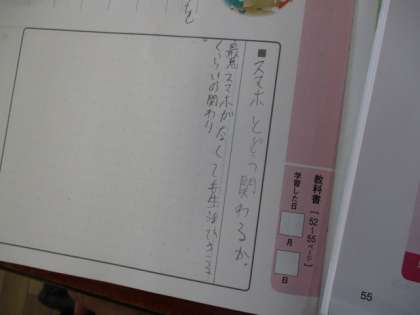 教科書【52~55ページ】
学習した日
月
日
■スマホとどう関わるか。
最悪スマホがなくても生活できる
くらいの関わり
55